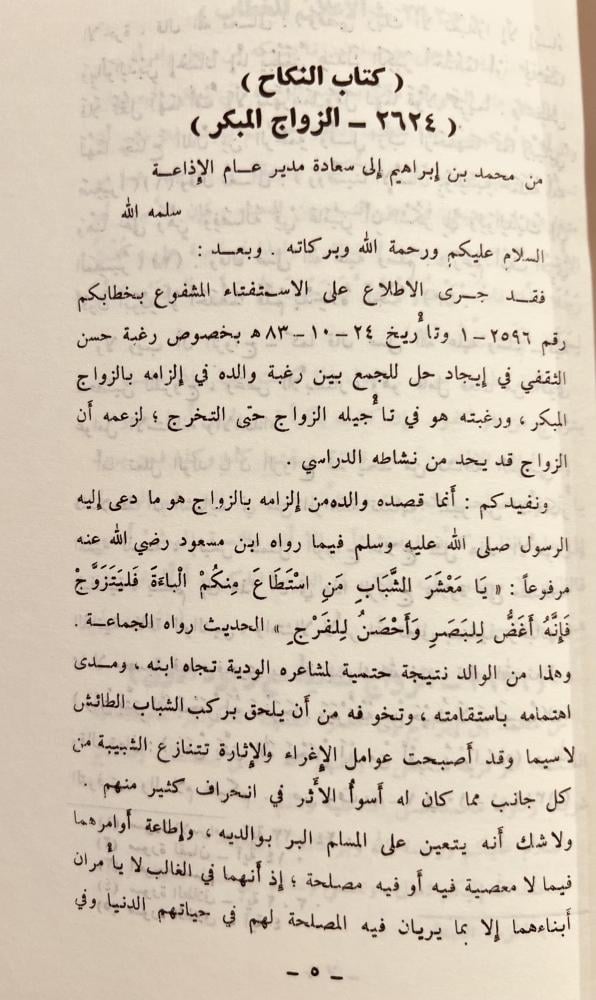 ( كتاب النكاح )
( ٢٦٢٤ ــ الزواج المبكر )
من محمد بن إبراهيم إلى سعادة مدير عـام الإذاعـة
سلمه الله
السلام عليكم ورحمة الله وبركاته . وبعـد :
فقـد جـرى الاطلاع على الاسـتفتاء المشفوع بخطابكم
رقم ٢٥٩٦ــ١ وتأريخ ٢٤ــ١٠ــ٨٣ه بخصوص رغبة حسن
الثقفي في إيجاد حل للجمع بين رغبة والده في إلزامه بالزواج
المبكر ، ورغبته هو في تأجيله الزواج حتى التخرج ؛ لزعمه أن
الزواج قد يحد من نشاطه الدراسي .
ونفيدكم : أنما قصده والدهمن إلزامه بالزواج هو ما دعى إليه
الرسول صلى الله عليه وسلم فيما رواه ابن مسعود رضي الله عنه
مرفوعاً : « يَا مَعْشَرَ الشَّبَابِ مَنِ اسْتَطَاعَ مِنكُمْ الْباءَةَ فَليَتَزَوَّجْ
فَإِنَّهُ أَغَضُّ لِلبَصَرِ وَأَحْصَنُ لِلفَرْجِ » الحديث رواه الجماعـة .
وهذا من الوالد نتيجة حتمية لمشاعره الودية تجاه ابنه ، ومـدى
اهتمامه باستقامته ، وتخو فه من أن يلحق بركب الشباب الطائش
لاسيما وقد أصبحت عوامل الإغراء والإثارة تتنازع الشبيبة من
كل جانب مما كان له أسوأُ الأَثر في انحراف كثير منهم .
ولاشك أنه يتعين على المسلم البر بوالديه ، وإطاعة أوامرهما
فيما لا معصية فيه أو فيه مصلحة ؛ إذ أنهما في الغالب لا يأمران
أبناءهما إلا بما يريان فيه المصلحة لهم في حياتهم الدنيا وفي
ــ ٥ ــ